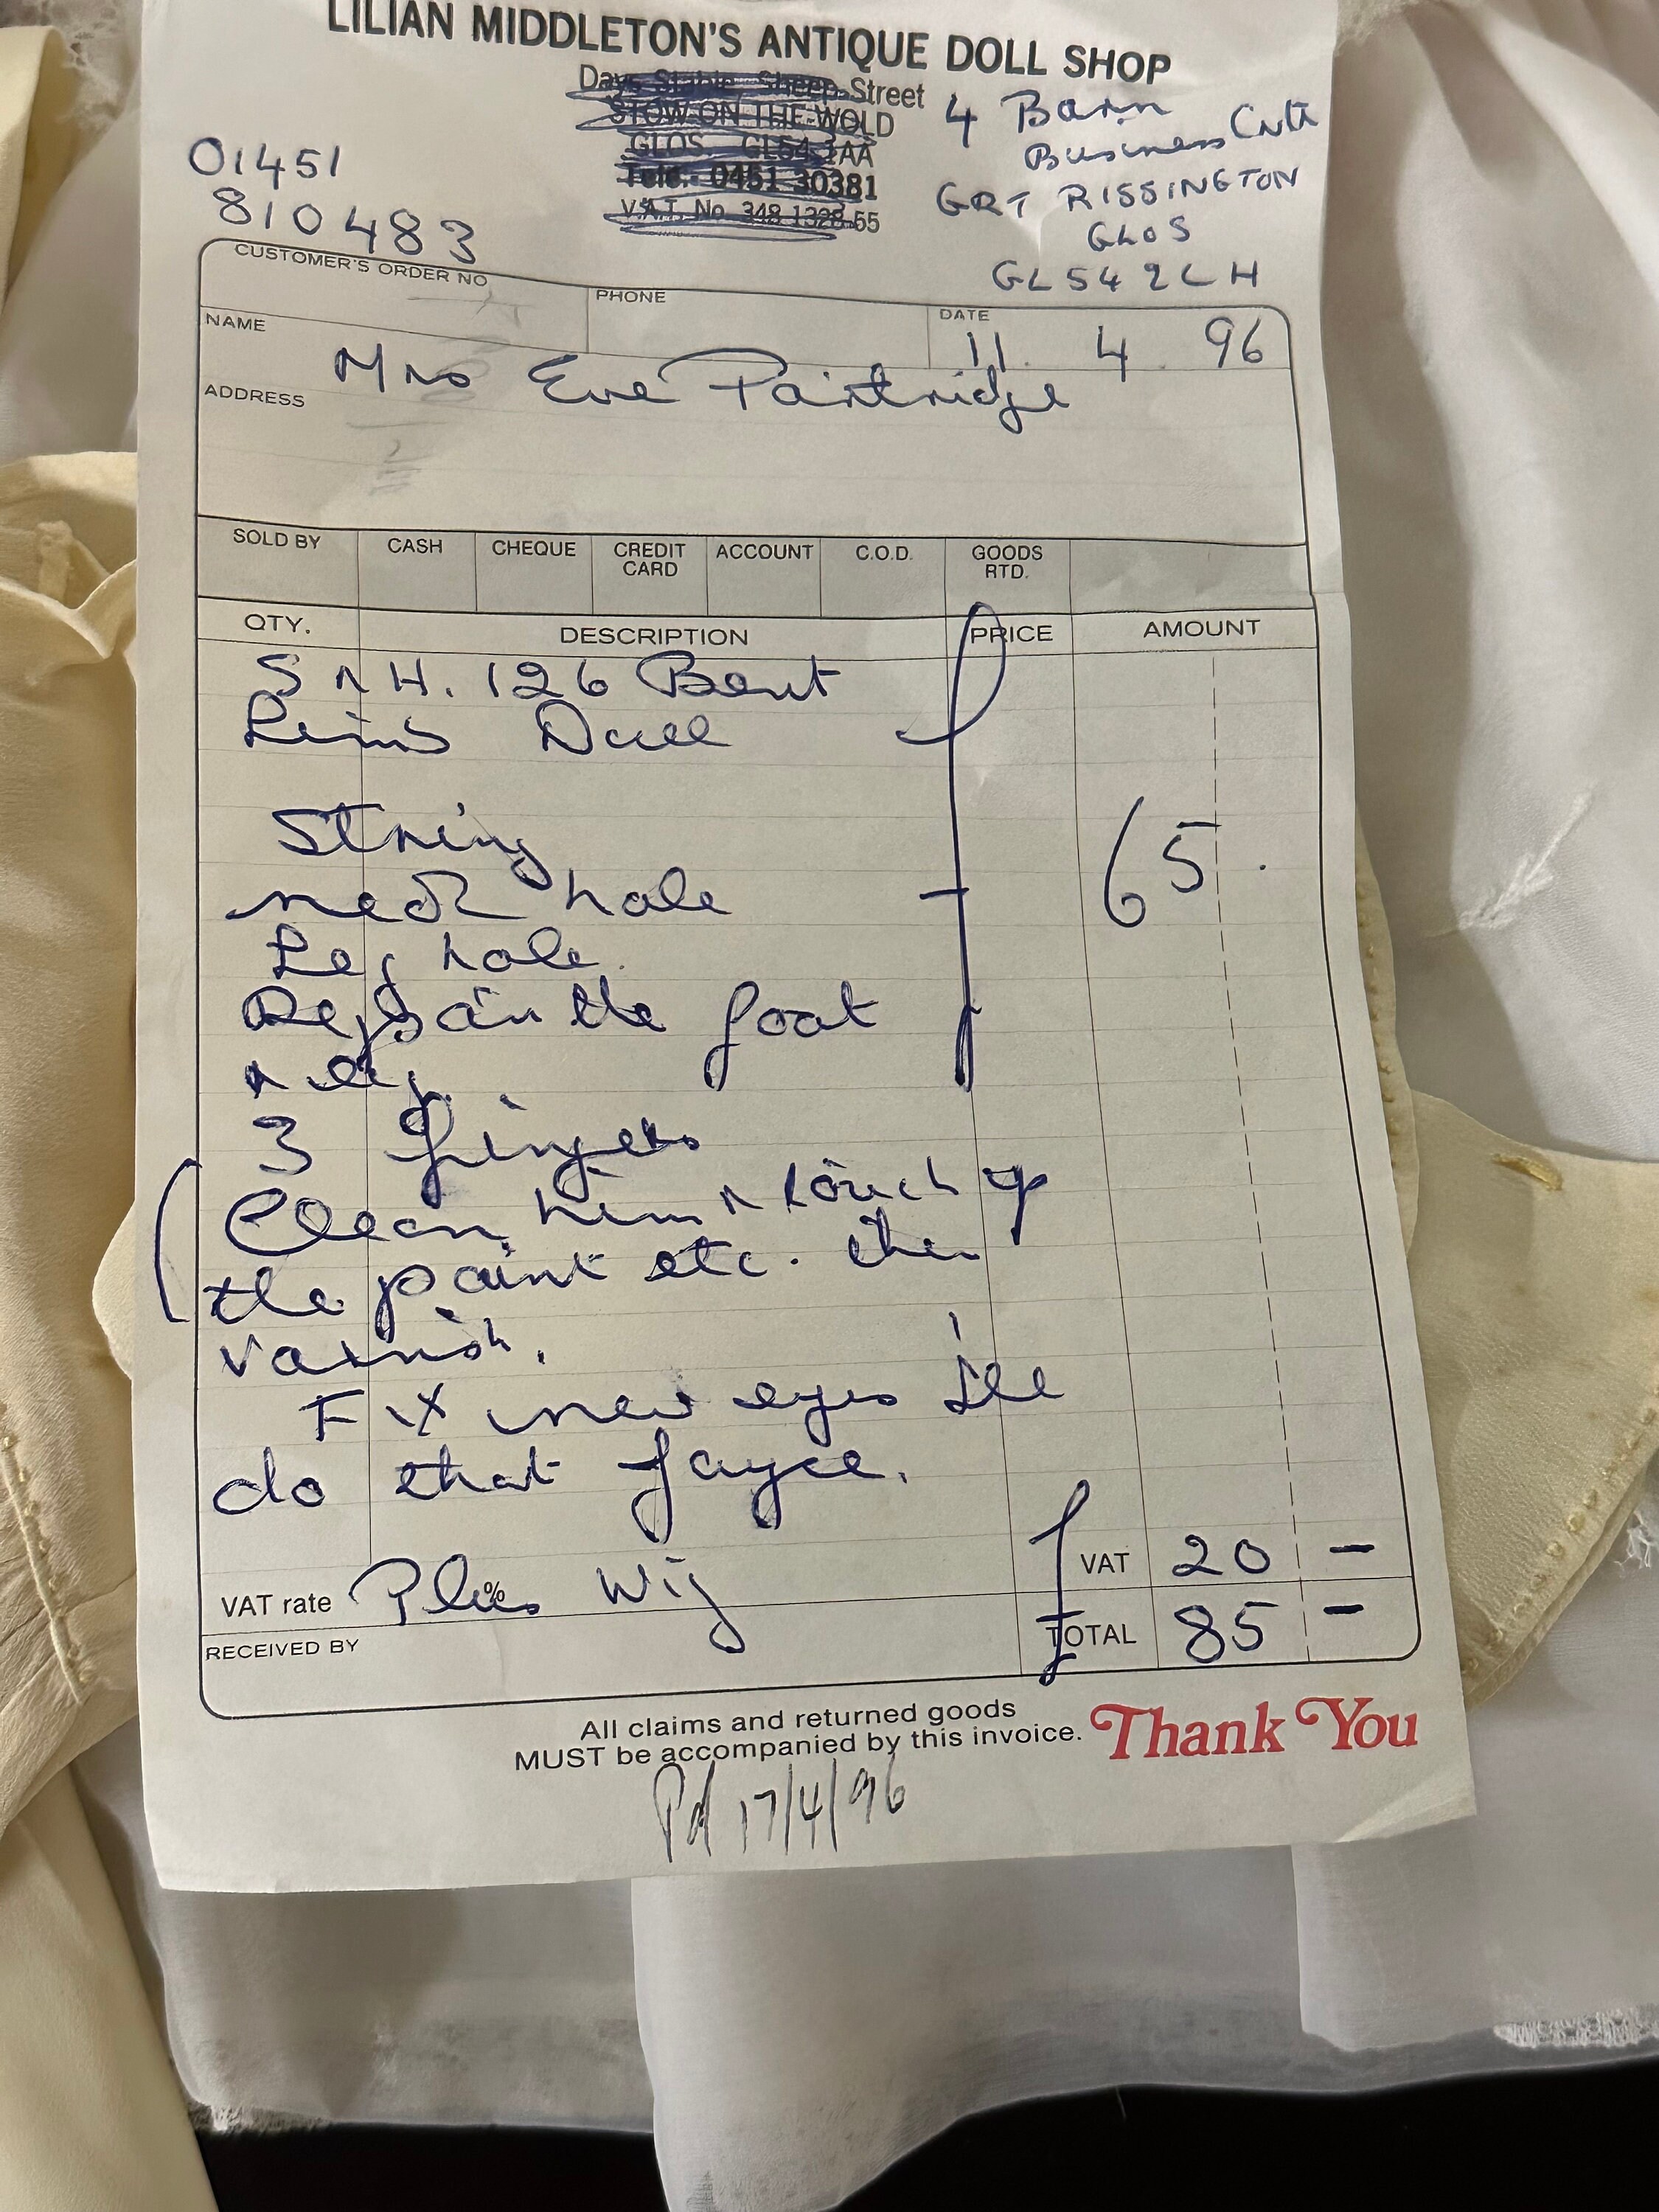 LILIAN MIDDLETON'S ANTIQUE DOLL SHOP
Days Stable Sheep Street
STOW-ON-THE-WOLD
GLOS. GL54 1AA
Tele.- 0451 30381
V.A.T. No. 348 1328 55
4 Barn
Business Cntr
GRT RISSINGTON
GLOS
GL54 2LH
01451
810483
CUSTOMER'S ORDER NO
PHONE
DATE
11. 4. 96
NAME
Mrs Eve Partridge
ADDRESS
SOLD BY CASH CHEQUE CREDIT CARD ACCOUNT C.O.D. GOODS RTD.
QTY. DESCRIPTION PRICE AMOUNT
S n H. 126 Bent
Limb Doll
String £ 65.
neck hole
Leg hole.
Repair the foot
n leg.
3 fingers
(Clean him n touch up
the paint etc. then
varnish.
Fix new eyes I'll
do that Jayce.
VAT rate % Plus Wig £ VAT 20 -
RECEIVED BY TOTAL 85 -
All claims and returned goods
MUST be accompanied by this invoice.
Thank You
Pd 17/4/96